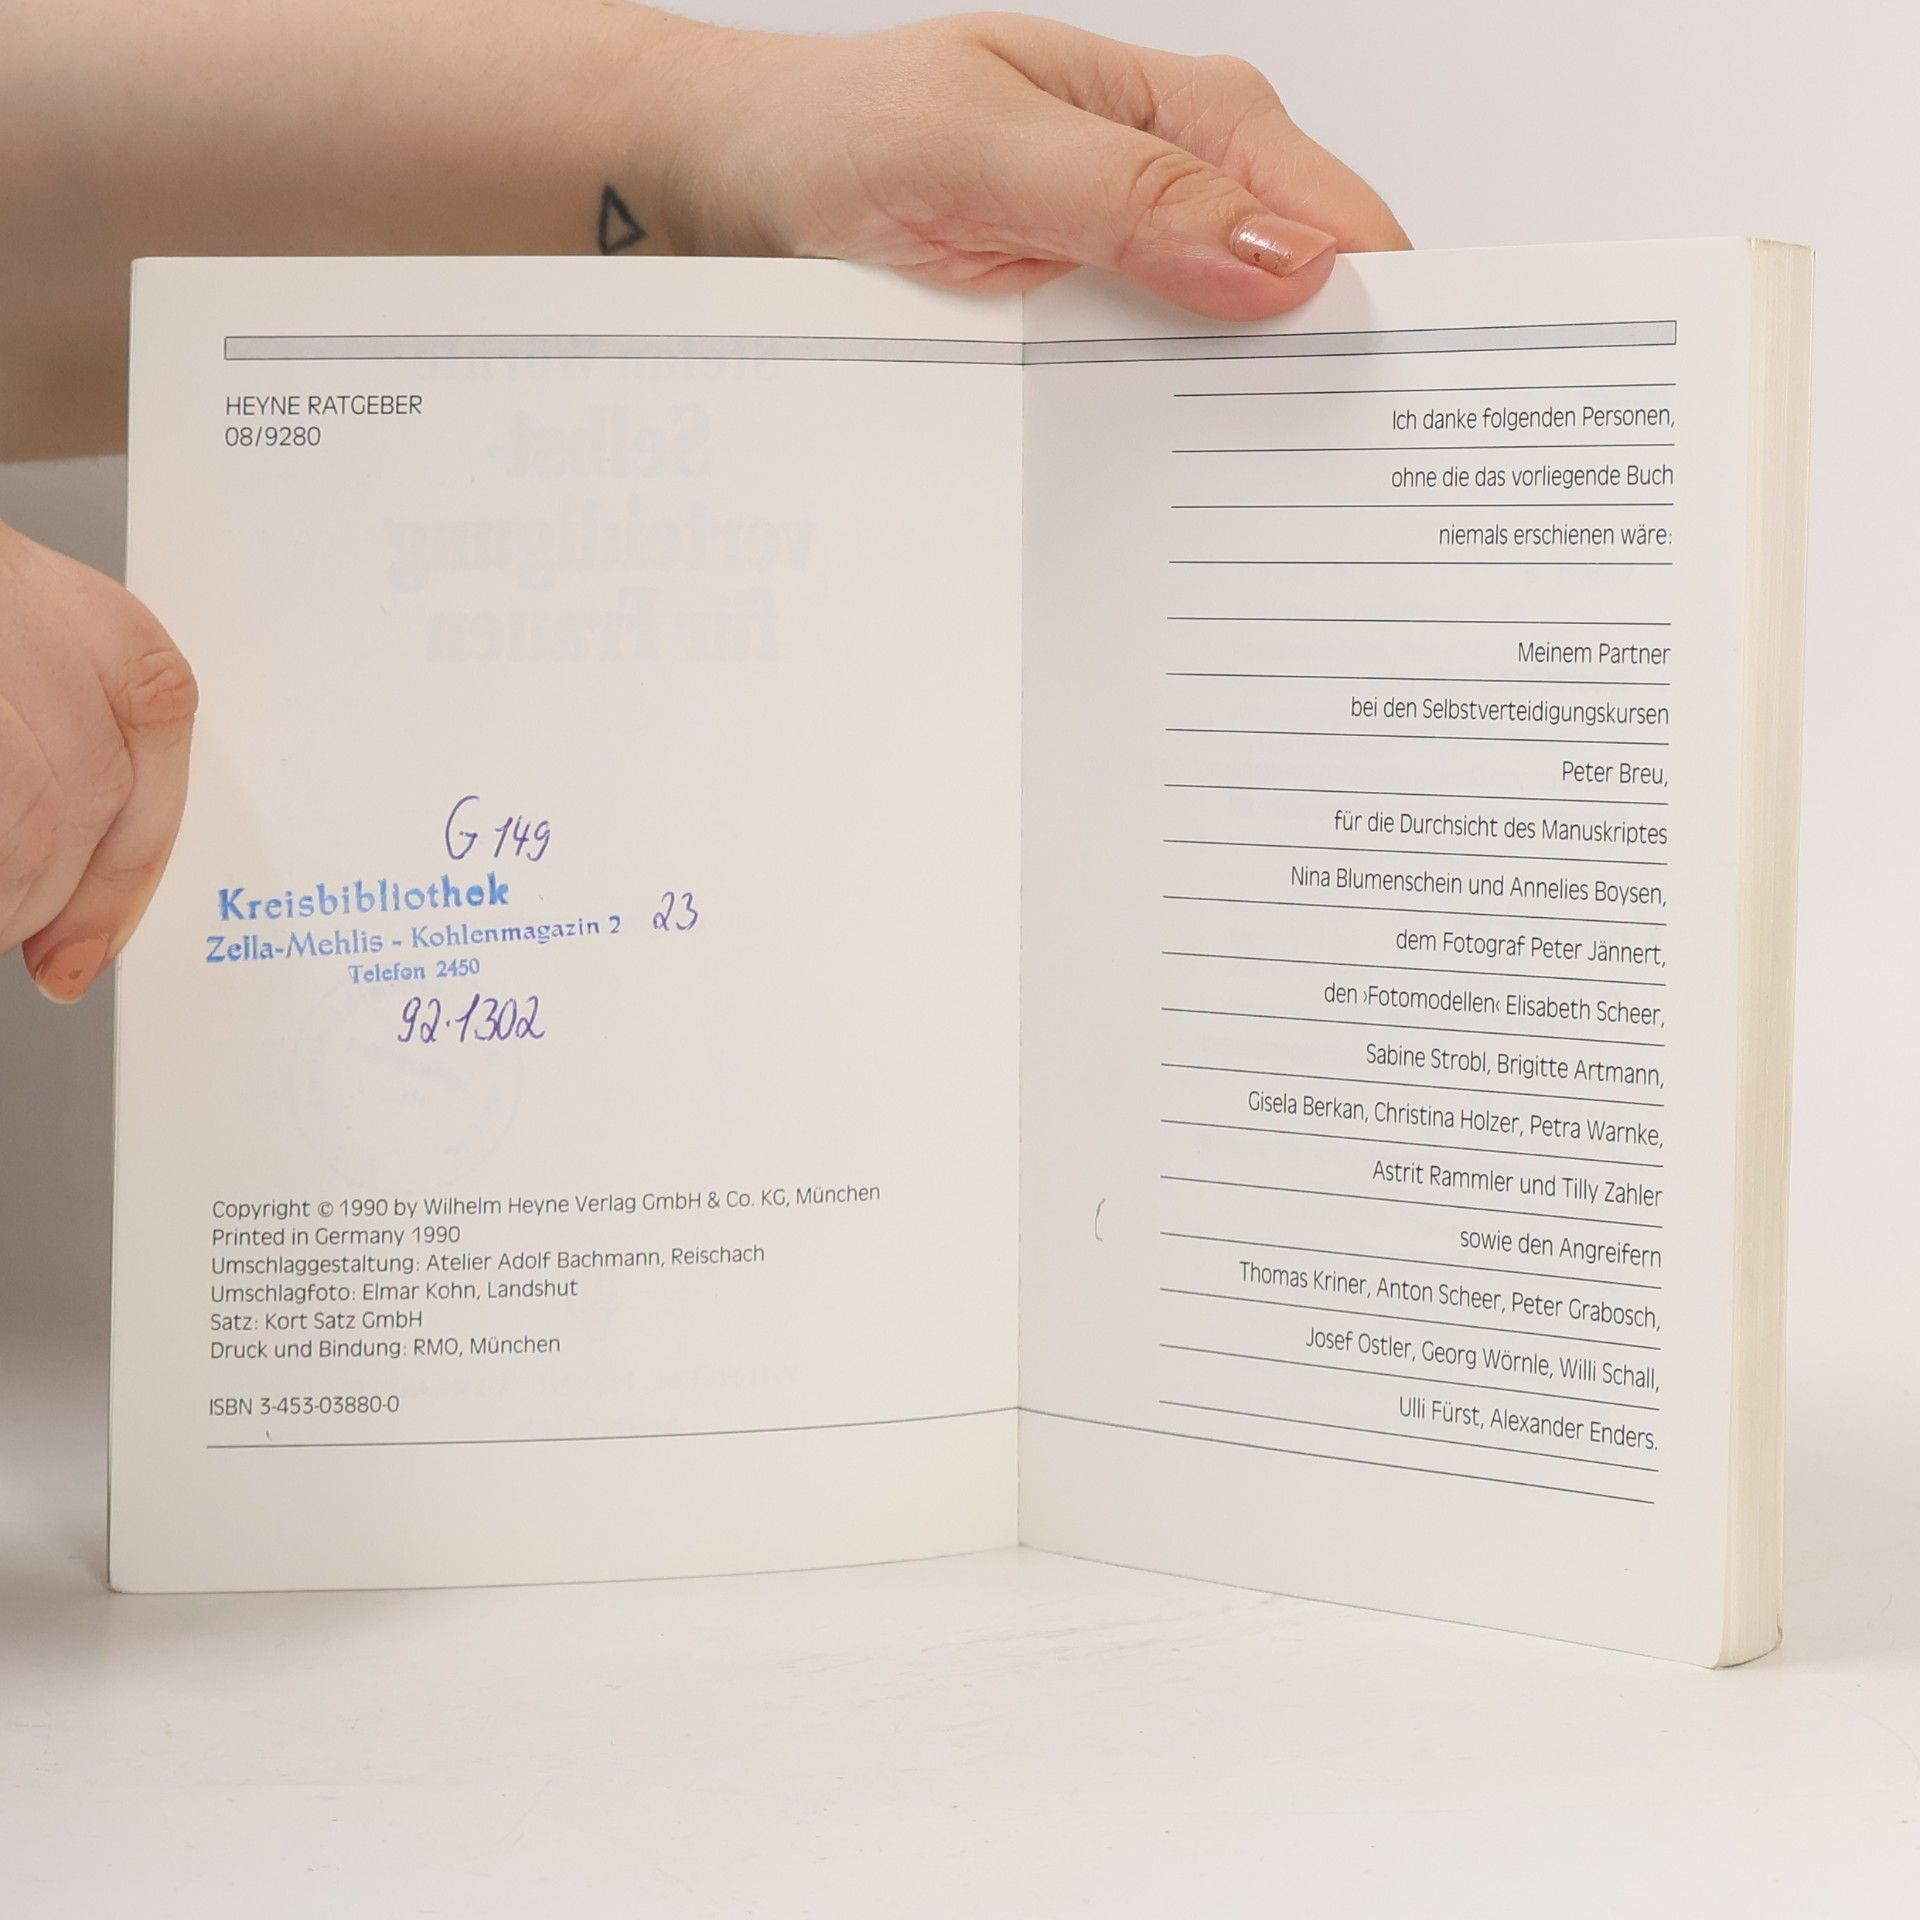 HEYNE RATGEBER
08/9280
G 149
Kreisbibliothek
Zella-Mehlis - Kohlenmagazin 2 23
Telefon 2450
92·1302
Copyright © 1990 by Wilhelm Heyne Verlag GmbH & Co. KG, München
Printed in Germany 1990
Umschlaggestaltung: Atelier Adolf Bachmann, Reischach
Umschlagfoto: Elmar Kohn, Landshut
Satz: Kort Satz GmbH
Druck und Bindung: RMO, München
ISBN 3-453-03880-0
Ich danke folgenden Personen,
ohne die das vorliegende Buch
niemals erschienen wäre:
Meinem Partner
bei den Selbstverteidigungskursen
Peter Breu,
für die Durchsicht des Manuskriptes
Nina Blumenschein und Annelies Boysen,
dem Fotograf Peter Jännert,
den ›Fotomodellen‹ Elisabeth Scheer,
Sabine Strobl, Brigitte Artmann,
Gisela Berkan, Christina Holzer, Petra Warnke,
Astrit Rammler und Tilly Zahler
sowie den Angreifern
Thomas Kriner, Anton Scheer, Peter Grabosch,
Josef Ostler, Georg Wörnle, Willi Schall,
Ulli Fürst, Alexander Enders.